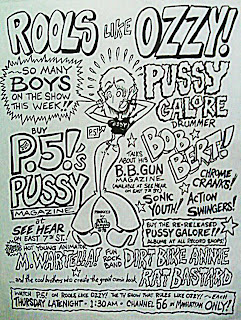 ROOLS LIKE OZZY!
...SO MANY
BOYS
ON THE SHOW
THIS WEEK!!
PUSSY
GALORE
DRUMMER
BOB
BERT!
BUY
P.5!'s
PUSSY
MAGAZINE
AT
SEE HEAR
ON EAST 7TH ST.
P.5!
OZZY
TALKS ABOUT HIS
B.B. GUN
MAGAZINE
(AVAILABLE AT SEE HEAR
ON EAST 7TH ST.)
CHROME
CRANKS!
SONIC
YOUTH!
ACTION
SWINGERS!
BUY THE RE-RELEASED
PUSSY GALORE
ALBUMS AT ALL RECORD SHOPS!
HOT YOUNG ANIMATOR
M. WARTELLA!
FUN
ROCK
BAND
DIRT BIKE ANNIE
and the cool brothers who create the great comic book,
RAT BASTARD
WATCH P.5! ON ROOLS LIKE OZZY! THE TV SHOW THAT RULES LIKE OZZY! — EACH
THURSDAY LATE NIGHT - 1:30 AM - CHANNEL 56 IN MANHATTAN ONLY!